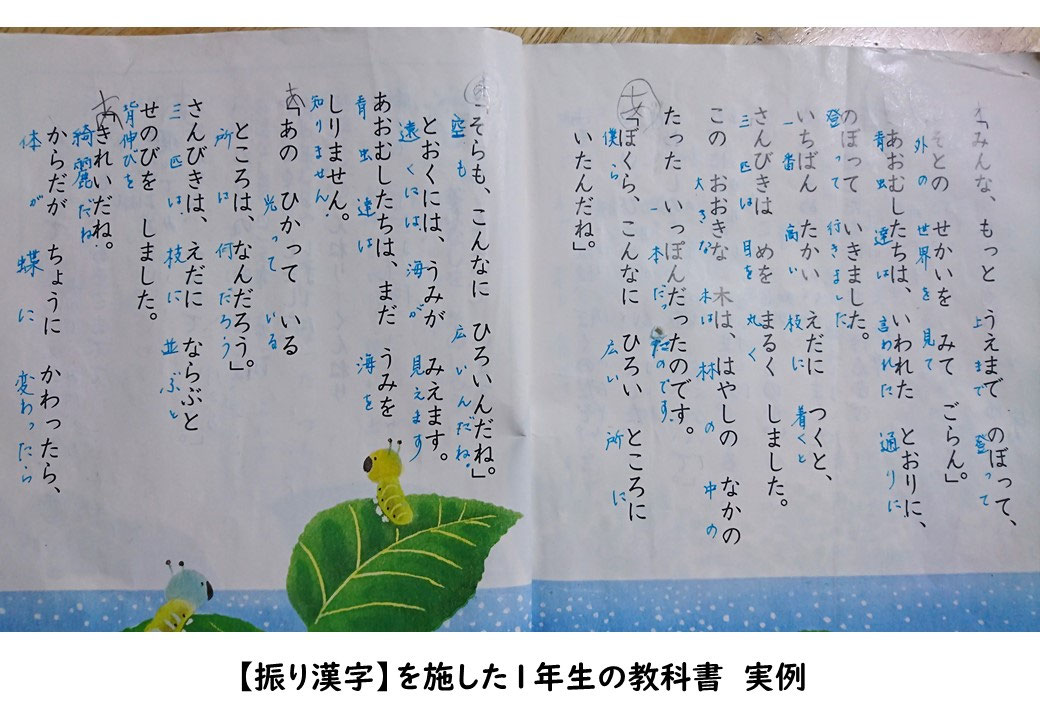 「みんな、もっと　うえまで　のぼって、
上まで　登って
そとの　せかいを　みて　ごらん。」
外の　世界を　見て
あおむしたちは、いわれた　とおりに、
青虫達は　言われた　通りに
のぼって　いきました。
登って　行きました
いちばん　たかい　えだに　つくと、
一番　高い　枝に　着くと
さんびきは　めを　まるく　しました。
三匹は　目を　丸く
この　おおきな　木は、はやしの　なかの
大きな　木は　林の　中の
たった　いっぽんだったのです。
一本だったのです
「ぼくら、こんなに　ひろい　ところに
僕ら　広い　所に
いたんだね。」
「そらも、こんなに　ひろいんだね。」
空も　広いんだね。
とおくには、うみが　みえます。
遠くには、海が　見えます
あおむしたちは、まだ　うみを
青虫達は　海を
しりません。
知りません
「あの　ひかって　いる
光って　いる
ところは、なんだろう。」
所は　何だろう
さんびきは、えだに　ならぶと
三匹は　枝に　並ぶと
せのびを　しました。
背伸びを
「きれいだね。
綺麗だね
からだが　ちょうに　かわったら、
体が　蝶に　変わったら
【振り漢字】を施した1年生の教科書　実例